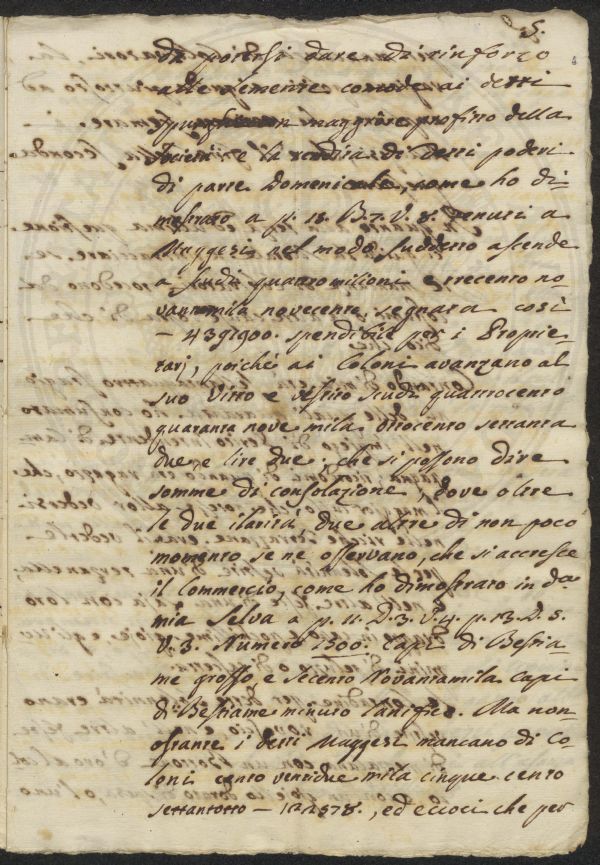 5.
da potersi dare di rinforzo
alle semente comode ai detti
con maggiore profitto della
Società e la rendita di detti poderi
di parte Domenicale, come ho di-
mostrato a p. 18. B. 7. V. 8. tenuti a
Maggesi nel modo suddetto ascende
a scudi quattromilioni e trecento no-
vantamila novecento, segnata così
— 4391900. spendibile per i Proprie-
tarj, poiché ai Coloni avanzano al
suo Vitto e vestito scudi quattrocento
quaranta nove mila ottocento settanta
due, e lire due; che si possono dire
somme di consolazione, dove oltre
le due ilarità, due altre di non poco
momento se ne osservano, che si accresce
il Commercio, come ho dimostrato in da.
mia Selva a p. 11. D. 3. V. 4. p. 13. D. 5.
V. 3. Numero 1500. capi di Bestia-
me grosso, e secento Novantamila capi
di Bestiame minuto lanifico. Ma non-
ostante i detti Maggesi mancano di Co-
loni cento ventidue mila cinque cento
settantotto — 122578., ed eccoci che per